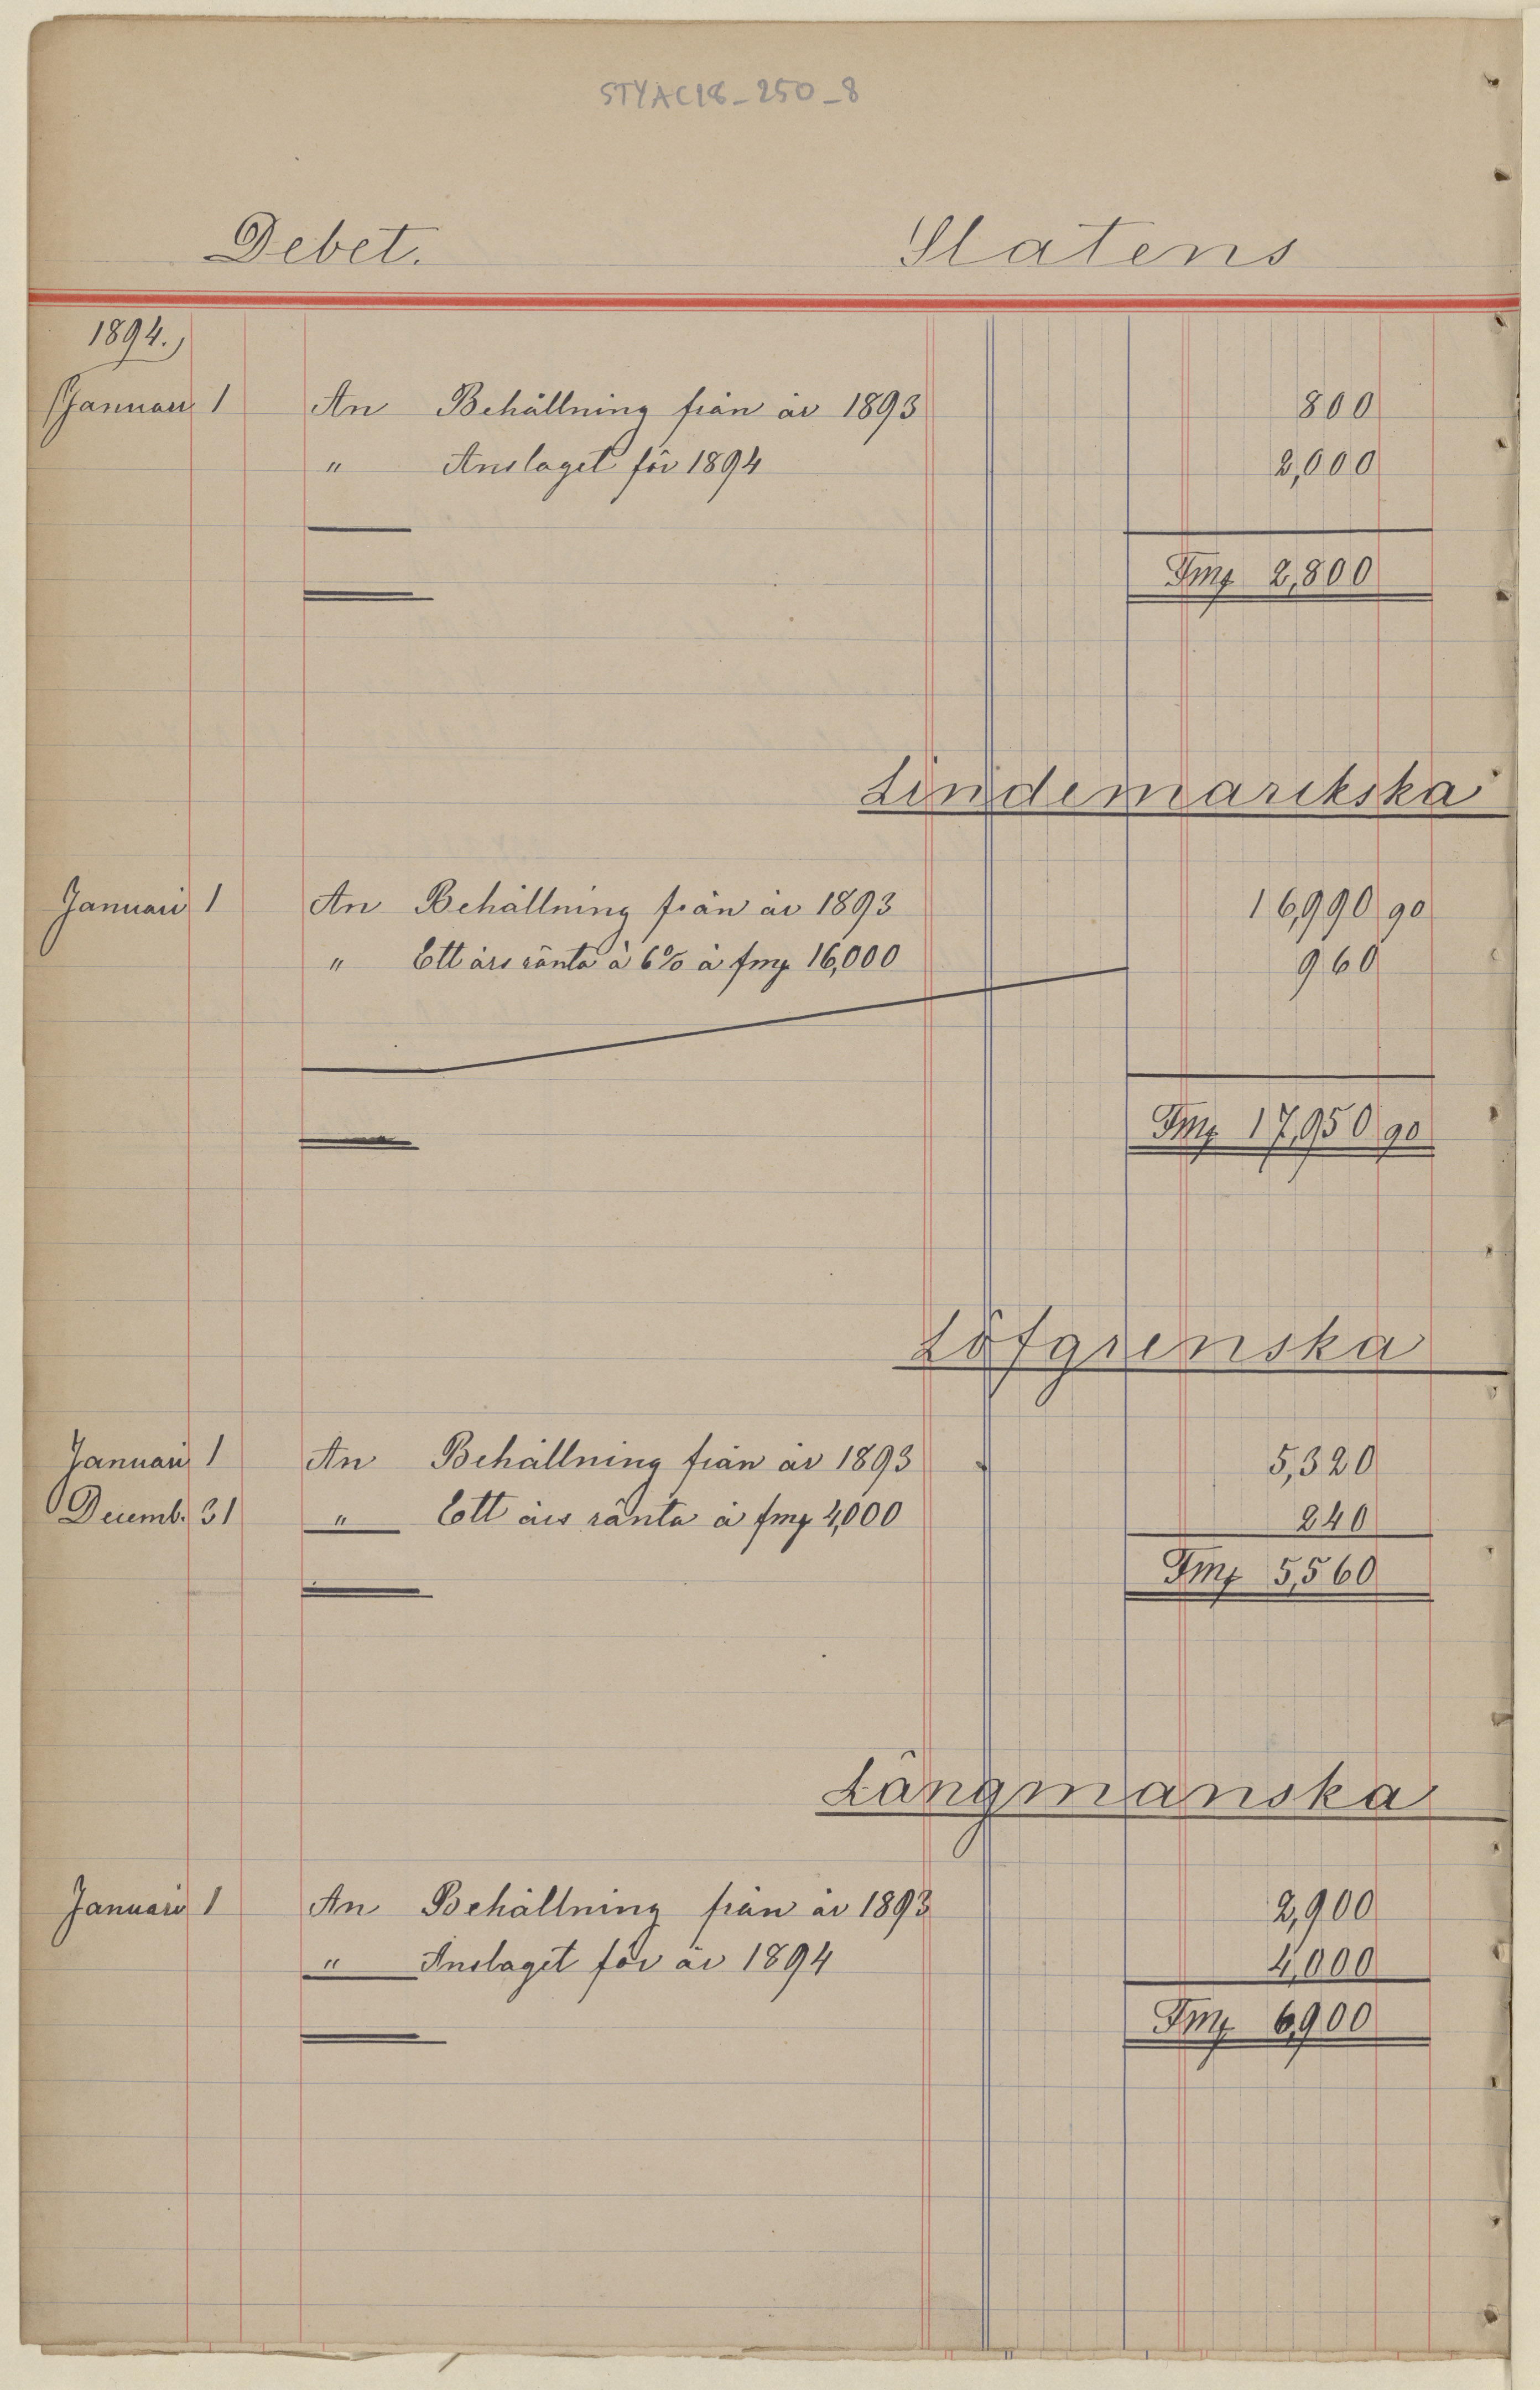 STYAC18_250_8
Debet. Statens
1894.
Januari 1 An Behållning från år 1893 800
" Anslaget för 1894 2,000
Fmg 2,800
Lindemarkska
Januari 1 An Behållning från år 1893 16,990 90
" Ett års ränta à 6% à fmg 16,000 960
Fmg 17,950 90
Löfgrenska
Januari 1 An Behållning från år 1893 5,320
Decemb. 31 " Ett års ränta à fmg 4,000 240
Fmg 5,560
Längmanska
Januari 1 An Behållning från år 1893 2,900
" Anslaget för år 1894 4,000
Fmg 6,900